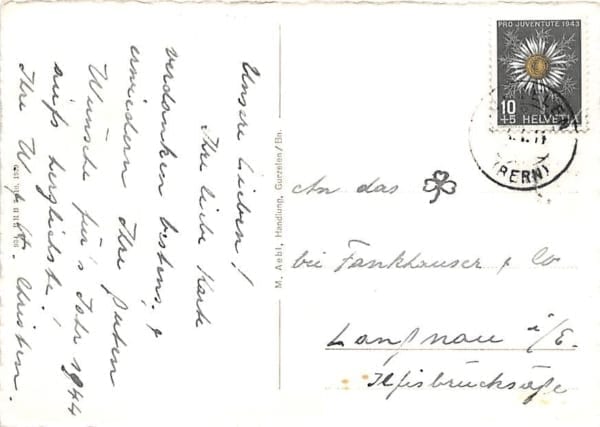 Unsere Lieben!
Ihre liebe Karte
verdanken bestens, &
erwidern Ihre guten
Wünsche für's Jahr 1944
aufs herzlichste!
Ihre W. Christen.
M. Aebi, Handlung, Gurzelen/Bn.
PRO JUVENTUTE 1943
10
+5 HELVETIA
(BERN)
An das
bei Fankhauser & Co
Langnau i/E.
Ilfisbrücksäge